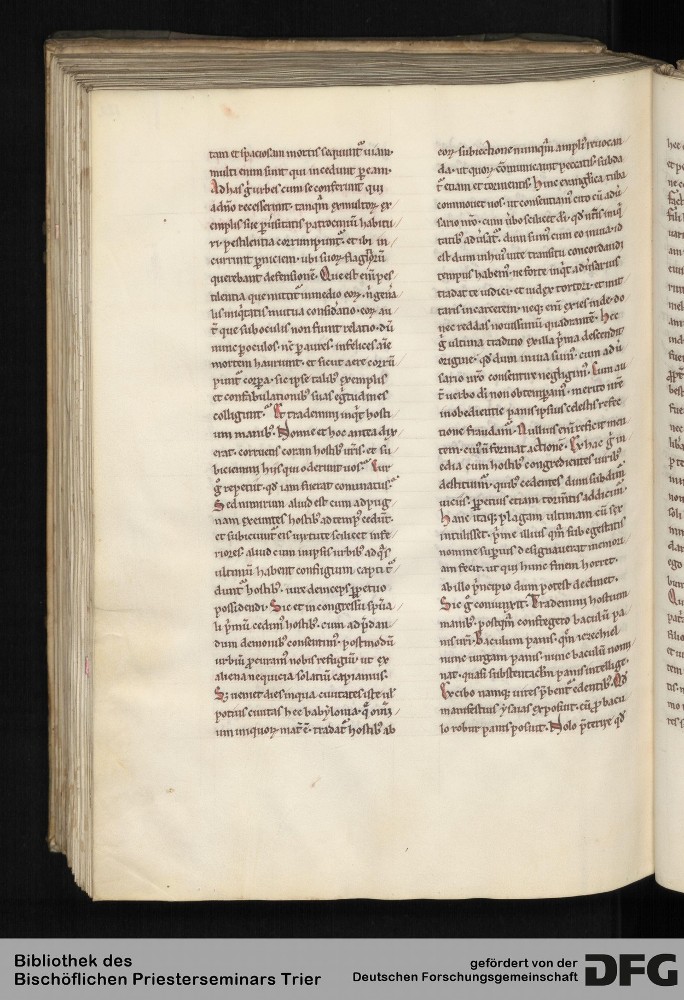 tam et spaciosam mortis sequunt᷑ uiam.
multi enim sunt qui incedunt ꝑ eam.
Ad has g̊ urbes cum se conferunt qui
a dn̄o recesserint. tanqm̄ ex multoꝝ ex
emplis sue puīsitatis patrociniū habitu
ri. pestilentia corrumpunt᷑. et ibi in
currunt ꝑniciem. ubi suoꝝ flagitioꝝ
querebant defensionē. Que est eni pes
tilentia que mittit᷑ in medio eoꝝ.
lis iniqͥtatis mutua confid̄atio. eoꝝ au
t̄ que sub oculis non fiunt relatio. dū
nunc ꝑ oculos. nc̄ ꝑ aures. infelices aīe
mortem hauriunt. et sicut aere corrū
punt᷑ corꝑa. sic ipse talibꝫ exemplis
et confabulationibꝫ suas egritudines
colligunt. Et trademini inqͥt hosti
um manibꝫ. Nonne et hoc antea dix
erat. corruetis coram hostibꝫ uris. et su
biciemini hijs qui oderunt uos. Cur
g̊ repetit. qd̓ iam fuerat cominatus.
Sed nimirum aliud est cum ad pug
nam exeuntes hostibꝫ ad tempꝰ cedūt.
et subiciunt᷑ eis uirtute scilicet infe
riores. aliud cum in ipsis urbibꝫ ad qͣs
ultimū habent confugium capti t̄
dunt᷑ hostibꝫ. iure deinceps ꝑpetuo
possidendi. Sic et in congressu spūa
li pͥmū cedimꝰ hostibꝫ. cum ad
dum demonibꝫ consentimꝰ. postmodū
urbiū ꝑcuram nobis refugiū. ut ex
aliena nequicia solatiū capiamus.
Sꝫ neniet dies in qua ciuitates iste ul̓
potius ciuitas hec babylonia. q̄ omīū
um iniquoꝝ mat᷑ ē. tradat᷑ hostibꝫ ab
eoꝝ subiectione nunqm̄ ampliꝰ reuocan
da. ut quoꝝ cōmunicauit peccatis. subda
t᷑ etiam et tormentis. Hinc euanglica tuba
commouet nos. ut consentiamꝰ cito cū adu̓
sario nr̄o. cum ubo scilicet di. qd̓ nr̄is iniqͥ
tatibꝫ adu̓sat᷑. dum sumꝰ cum eo in uia. id
est dum in huiꝰ uite transitu concordandi
tempus habemꝰ. ne forte inqͥt adu̓sarius
tradat te iudici. et iudex tortori. et mit
taris in carcerem. neqꝫ eni exies inde. do
nec reddas nouissimū quadrantē. Hec
g̊ ultima traditio ex illa pͥma descendit
origine. qd̓ dum in uia sumꝰ. cum adu̓
sario nr̄o consentire negligimꝰ. Cum au
t̄ uerbo di non obtemperamꝰ. merito nr̄e
inobedientie panis ipsius celestis refec
tione fraudamꝰ. Nullius eni reficit men
tem. cuiꝰ n̄ format actionē. Ex hac g̊ in
edia cum hostibꝫ congredientes uiribꝫ
destituimꝰ. quibꝫ cedentes dum subdimꝰ
uiciis. ꝑpetuis etiam tormtis addicimꝰ.
Hanc itaqꝫ plagam ultimam cū sex
intulisset. pͥme illius qm̄ sub egestatis
nomine supͥus designauerat memori
am fecit. ut qui hunc finem horret.
ab illo pͥncipio dum potest declinet.
Sic g̊ coniunxit. Trademini hostium
manibꝫ. postqm̄ confregero baculū pa
nis uri. Baculum panis. qm̄ iezechiel
nunc uirgam panis. nunc baculū nomi
nat. quasi substentaclm̄ panis intellige.
Ex cibo namqꝫ uires p̄bent᷑ edentibꝫ. Qd̓
manifestius ysaias exposuit. cū ꝓ bacu
lo robur panis posuit. Nolo pͥterire qd̓
Bibliothek des
Bischöflichen Priesterseminars Trier
gefördert von der
Deutschen Forschungsgemeinschaft
DFG